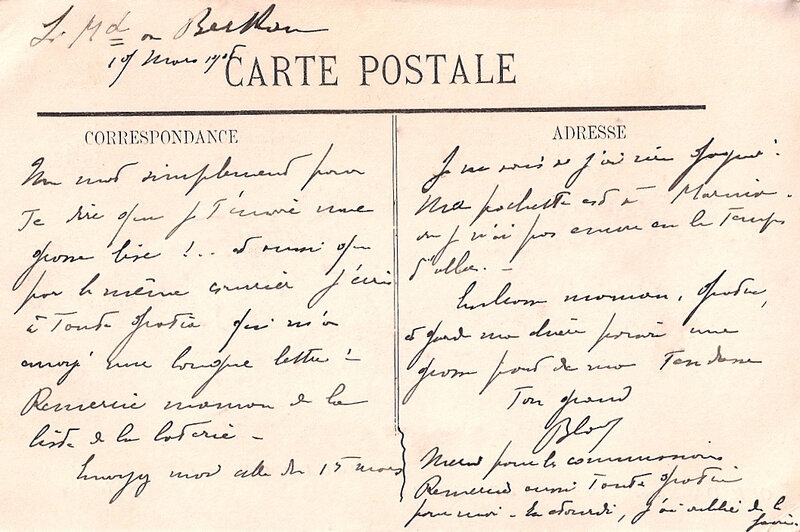 CARTE POSTALE
CORRESPONDANCE
Un mot simplement pour
Te dire que je t'envoie une
grosse bise !.. et aussi que
par le même courrier j'écris
à Tante qui m'a
envoyé une longue lettre !
Remercie maman de la
liste de la loterie -
Envoyez moi celle du 15 mars
ADRESSE
Je ne sais si j'ai rien gagné !
Ma pochette est à
ou je n'ai pas encore eu le temps
d'aller. -
Embrasse maman,
et garde ma chérie pour une
grosse part de ma Tendresse
Ton grand
Merci pour les commissions
Remercie aussi Tante
pour moi - j'ai oublié de le